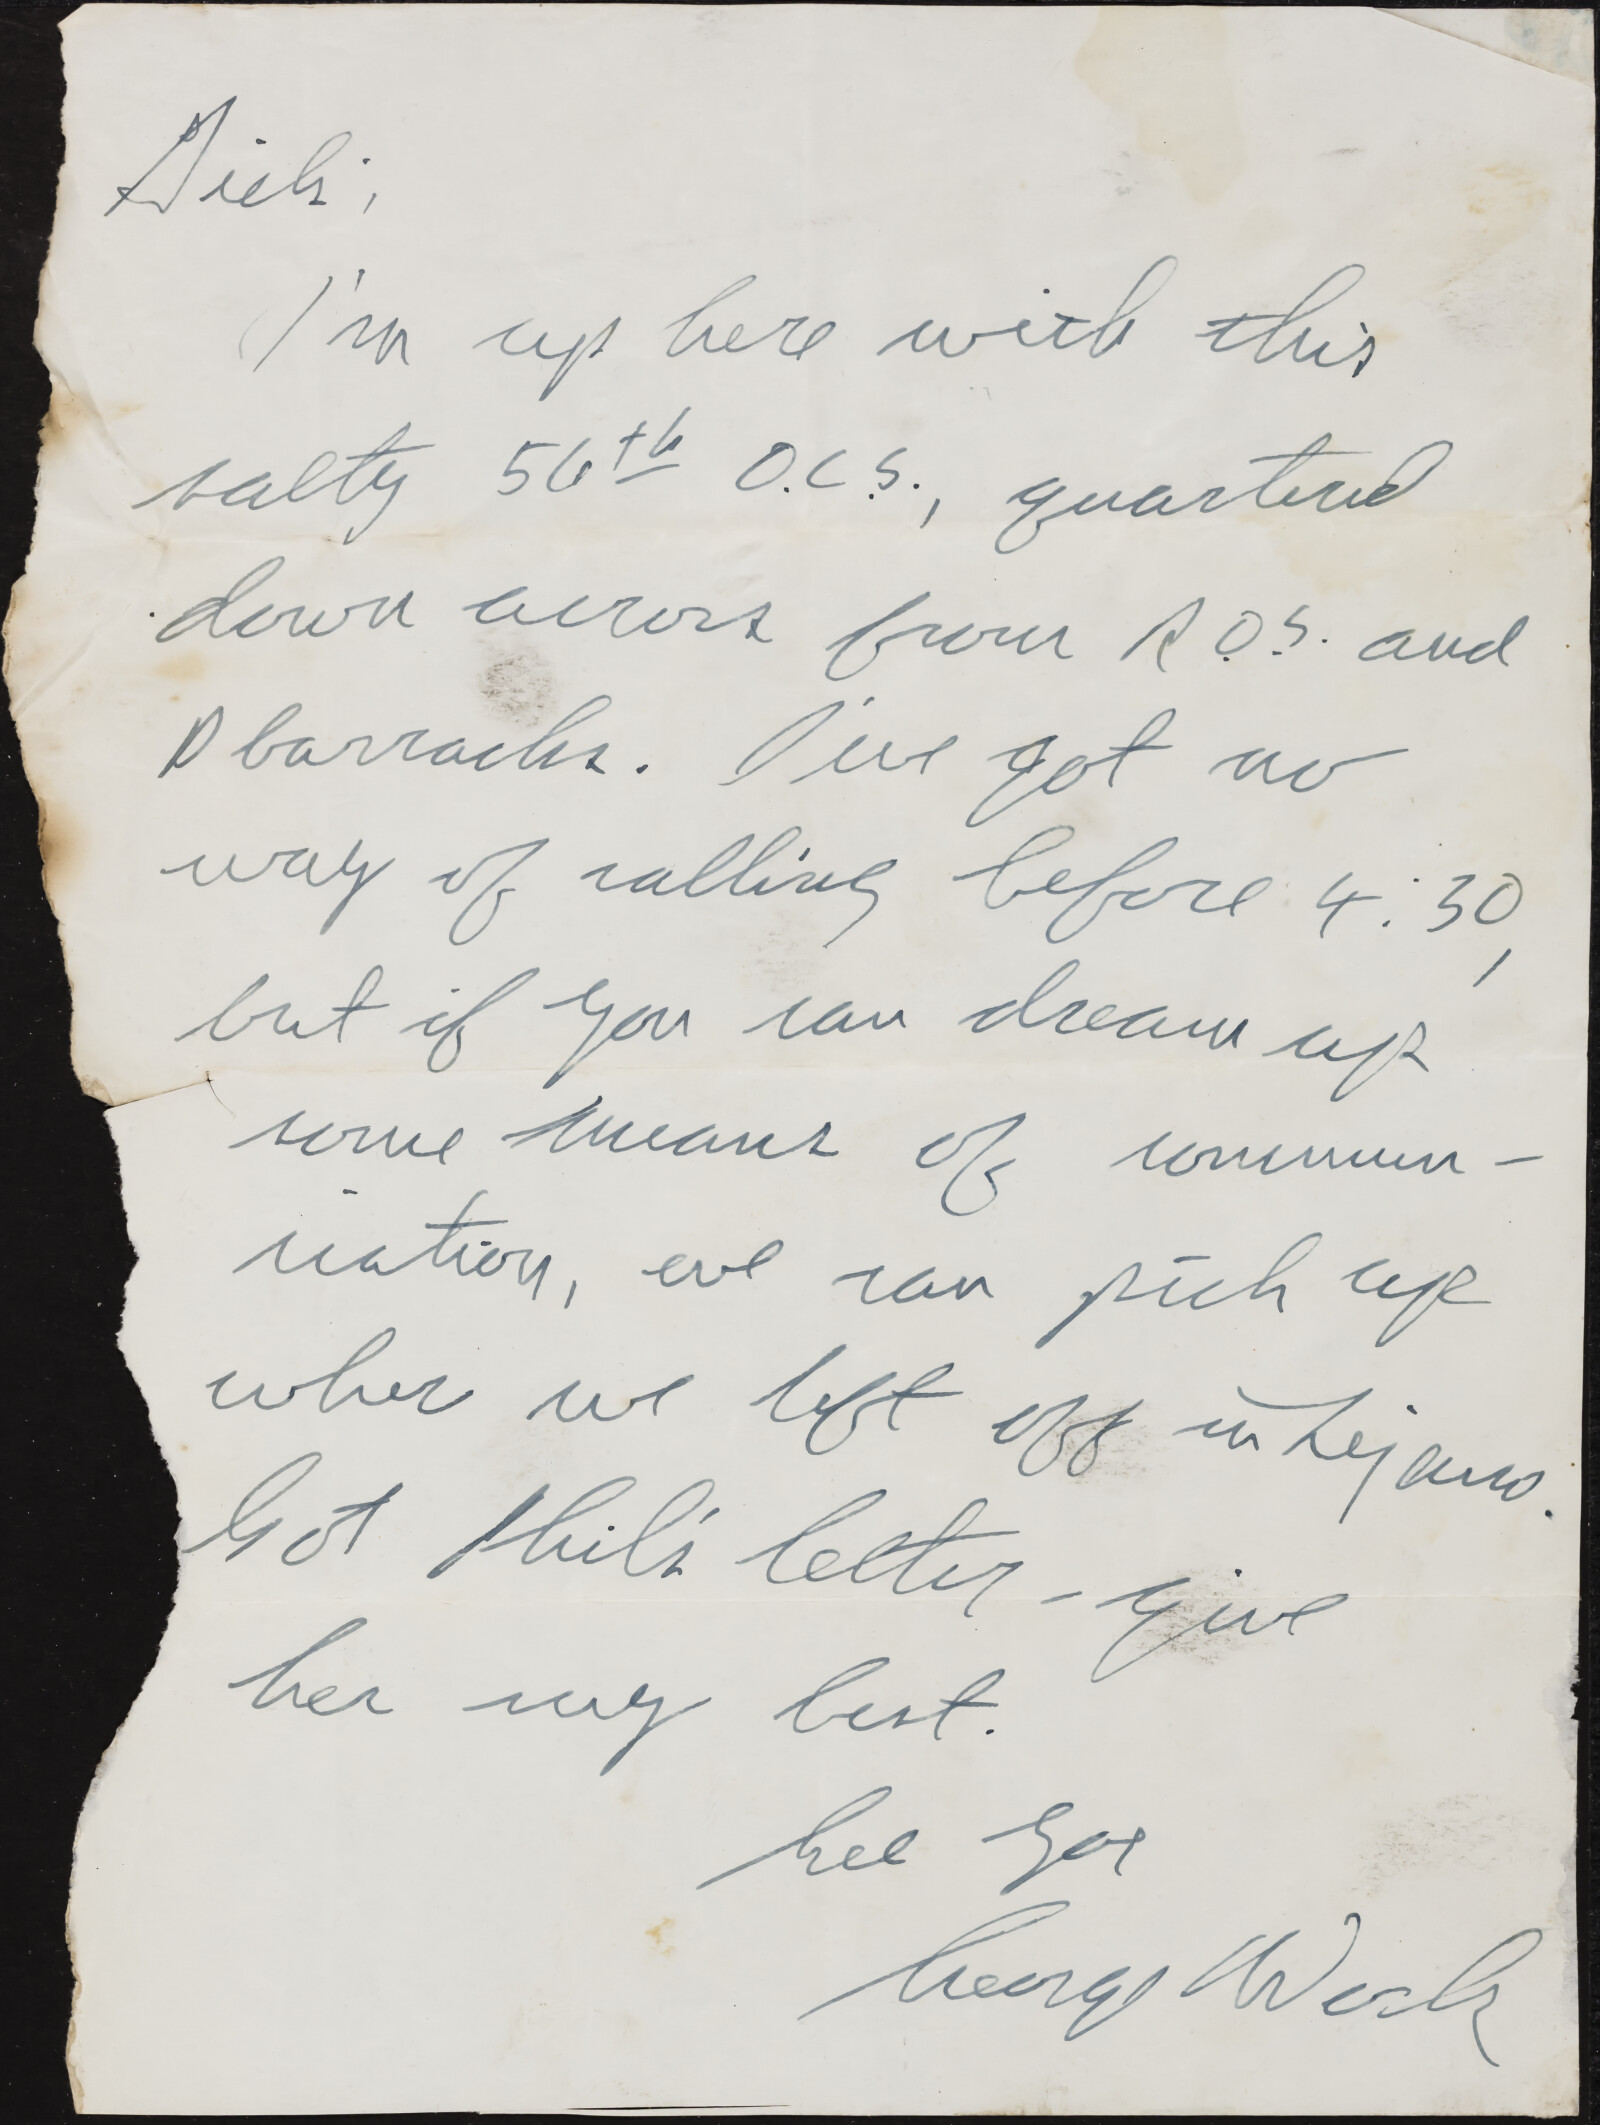 Dick,
I'm up here with this
salty 56th O.C.S., quartered
down across from R.O.S. and
D barracks. I've got no
way of calling before 4:30,
but if you can dream up
some means of commun-
ication, we can pick up
where we left off in Lejeune.
Got Phil's letter - give
her my best.
See you
George Work